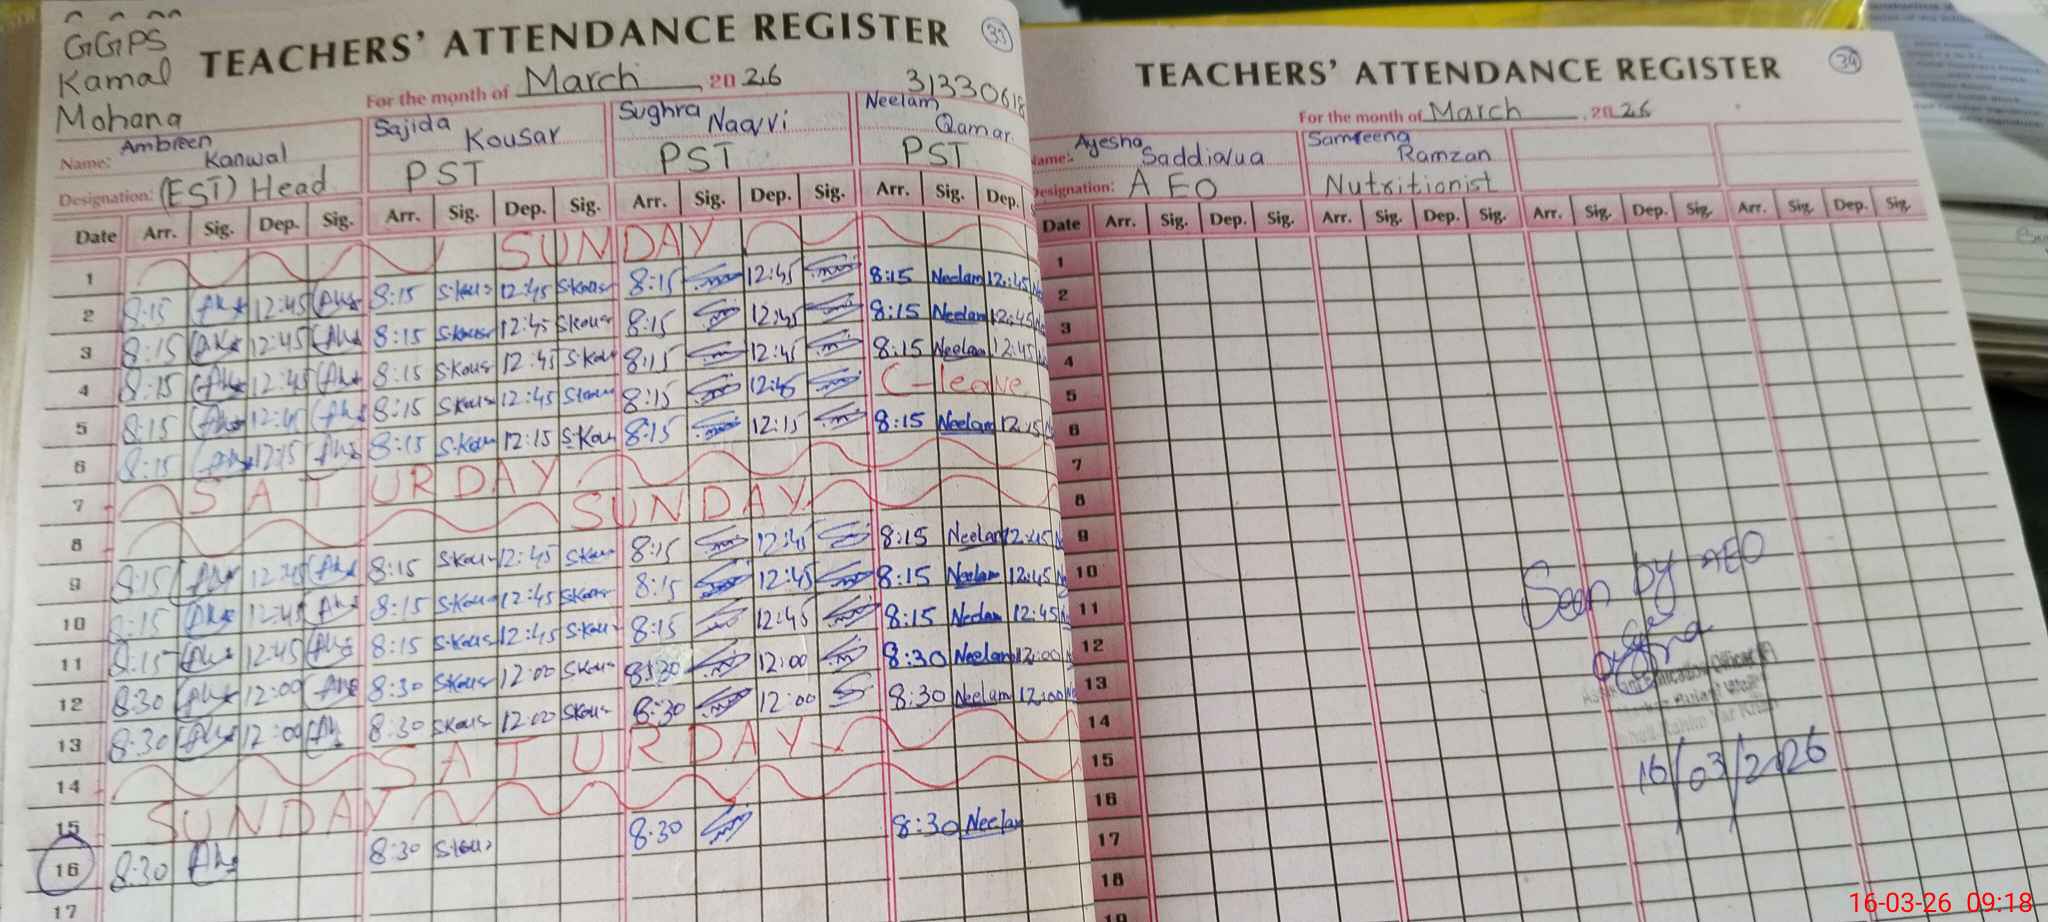 GGPS
Kamal
Mohana
TEACHERS' ATTENDANCE REGISTER 33
For the month of March 2026
31330618
Name: Ambreen Kanwal Sajida Kousar Sughra Naqvi Neelam Qamar
Designation: (EST) Head PST PST PST
Date Arr. Sig. Dep. Sig. Arr. Sig. Dep. Sig. Arr. Sig. Dep. Sig. Arr. Sig. Dep.
1 SUNDAY
2 8:15 12:45 8:15 S.Kous 12:45 S.Kous 8:15 12:45 8:15 Neelam 12:45
3 8:15 12:45 8:15 S.Kous 12:45 S.Kous 8:15 12:45 8:15 Neelam 12:45
4 8:15 12:45 8:15 S.Kous 12:45 S.Kou 8:15 12:45 8:15 Neelam 12:45
5 8:15 12:45 8:15 S.Kous 12:45 8:15 12:45 C-leave
6 8:15 12:15 8:15 S.Kou 12:15 S.Kou 8:15 12:15 8:15 Neelam 12:15
7 SATURDAY
8 SUNDAY
9 8:15 12:45 8:15 S.Kous 12:45 S.Kous 8:15 12:45 8:15 Neelam 12:45
10 8:15 12:45 8:15 S.Kous 12:45 S.Kous 8:15 12:45 8:15 Neelam 12:45
11 8:15 12:45 8:15 S.Kous 12:45 S.Kous 8:15 12:45 8:15 Neelam 12:45
12 8:30 12:00 8:30 S.Kous 12:00 S.Kous 8:30 12:00 8:30 Neelam 12:00
13 8:30 12:00 8:30 S.Kous 12:00 S.Kous 8:30 12:00 8:30 Neelam 12:00
14 SATURDAY
15 SUNDAY
16 8:30 8:30 S.Kous 8:30 8:30 Neelam
17
TEACHERS' ATTENDANCE REGISTER 34
For the month of March 2026
Name: Ayesha Samreena Ramzan
Designation: AEO Nutritionist
Date Arr. Sig. Dep. Sig. Arr. Sig. Dep. Sig. Arr. Sig. Dep. Sig. Arr. Sig. Dep. Sig.
1
2
3
4
5
6
7
8
9
10
11
12
13
14
15
16
17
18
19
Seen by AEO
16/03/2026
16-03-26 09:18